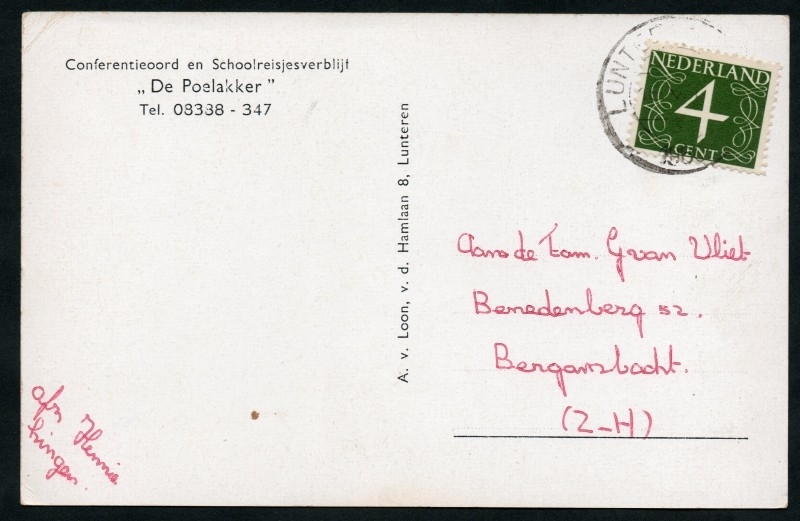 Conferentieoord en Schoolreisjesverblijf
„ De Poelakker "
Tel. 08388 - 347
A. v. Loon, v. d. Hamlaan 8, Lunteren
NEDERLAND
4
CENT
Aan de Fam. G van Vliet
Benedenberg 52.
Bergambacht.
(Z-H)
afz Hennie